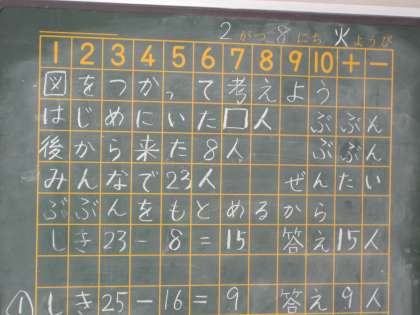 2がつ8にち火ようび
1 2 3 4 5 6 7 8 9 10 + -
図をつかって考えよう
はじめにいた□人 ぶぶん
後から来た8人 ぶぶん
みんなで23人 ぜんたい
ぶぶんをもとめるから
しき23-8=15 答え15人
① しき25-16=9 答え9人